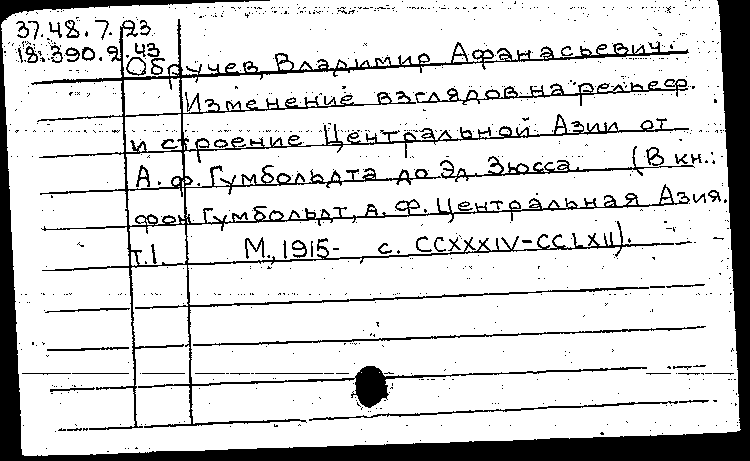 37.48.7.23
18.390.2.43
Обручев, Владимир Афанасьевич.
Изменение взглядов на рельеф.
и строение Центральной Азии от
А. ф. Гумбольдта до Эд. Зюсса. (В кн.:
фон Гумбольдт, А. Ф. Центральная Азия.
т.I. М., 1915- , с. CCXXXIV-CCLXII).